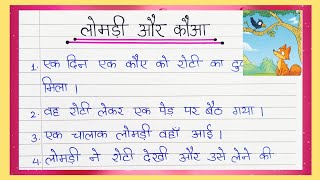 लोमड़ी और कौआ
1. एक दिन एक कौए को रोटी का
मिला ।
2. वह रोटी लेकर एक पेड़ पर बैठ गया ।
3. एक चालाक लोमड़ी वहाँ आई ।
4. लोमड़ी ने रोटी देखी और उसे लेने की